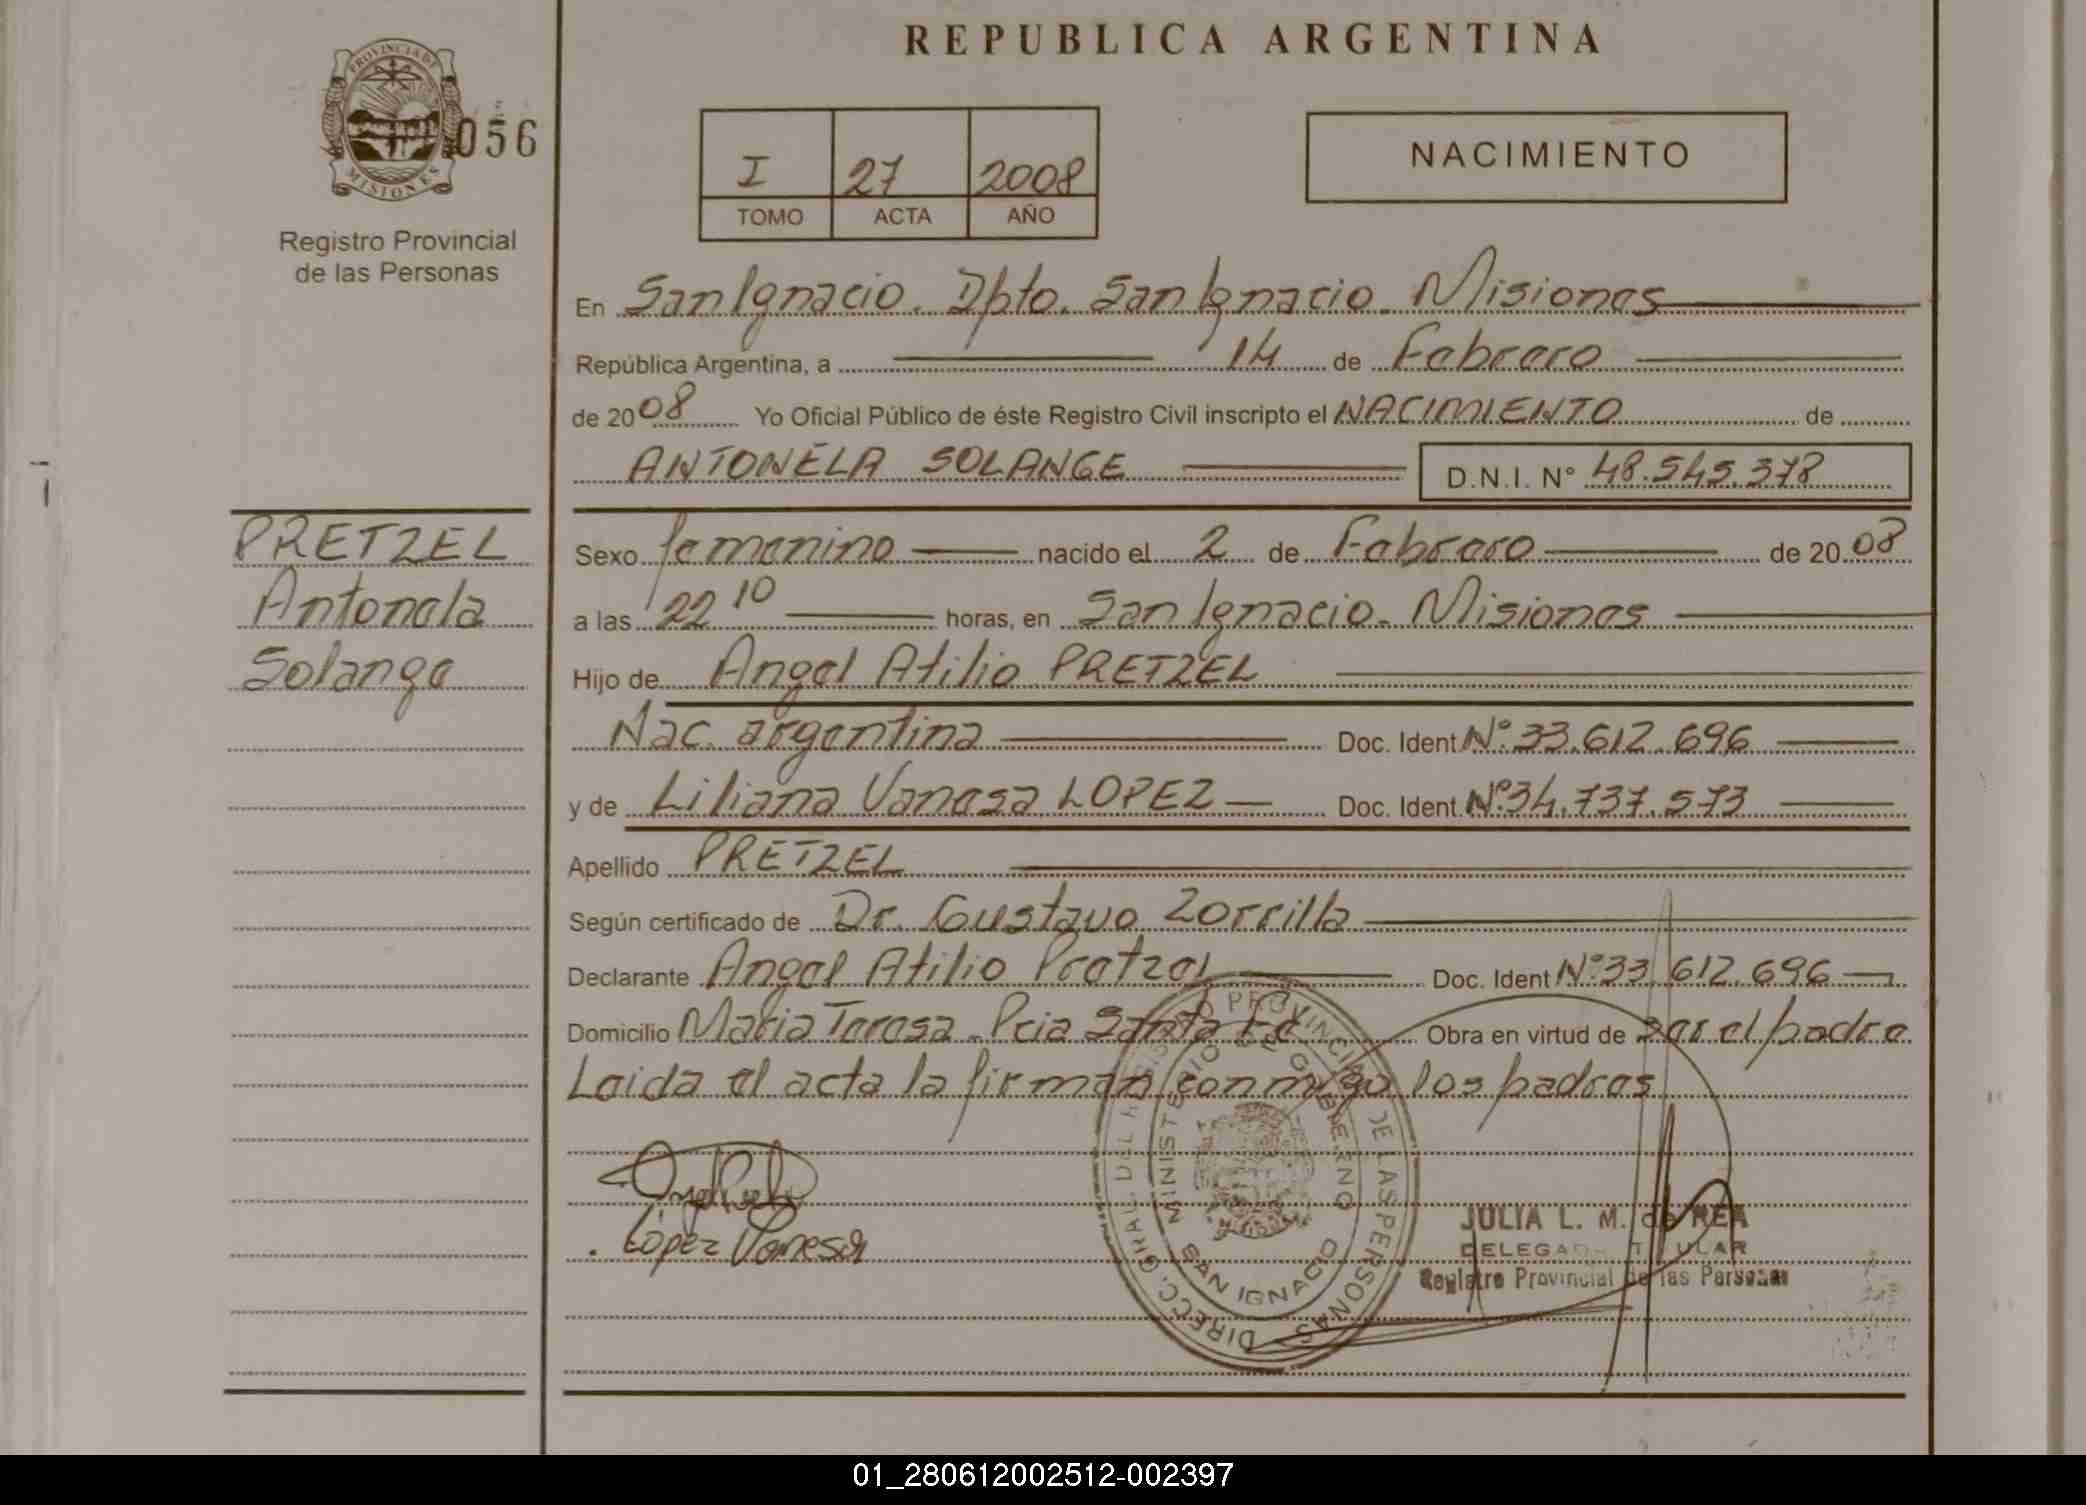 REPUBLICA ARGENTINA
PROVINCIA DE MISIONES
056
Registro Provincial
de las Personas
I 27 2008
TOMO ACTA AÑO
NACIMIENTO
En San Ignacio. Dpto. San Ignacio. Misiones
República Argentina, a 14 de Febrero
de 2008 Yo Oficial Público de éste Registro Civil inscripto el NACIMIENTO de
ANTONELA SOLANGE D.N.I. Nº 48.545.378
PRETZEL
Antonela
Solange
Sexo femenino nacido el 2 de Febrero de 2008
a las 22 10 horas, en San Ignacio. Misiones
Hijo de Angel Atilio PRETZEL
Nac. argentina Doc. Ident Nº 33.612.696
y de Liliana Vanesa LOPEZ Doc. Ident. Nº 34.737.573
Apellido PRETZEL
Según certificado de Dr. Gustavo Zorrilla
Declarante Angel Atilio Pretzel Doc. Ident Nº 33.612.696
Domicilio Maria Teresa - Pcia Santa Fe Obra en virtud de ser el padre
Leida el acta la firman conmigo los padres
López Vanesa
DIRECC. GRAL. DEL REGISTRO PROVINCIAL DE LAS PERSONAS
MINISTERIO DE GOBIERNO
SAN IGNACIO
JULIA L. M. de REA
DELEGADA TITULAR
Registro Provincial de las Personas
01_280612002512-002397